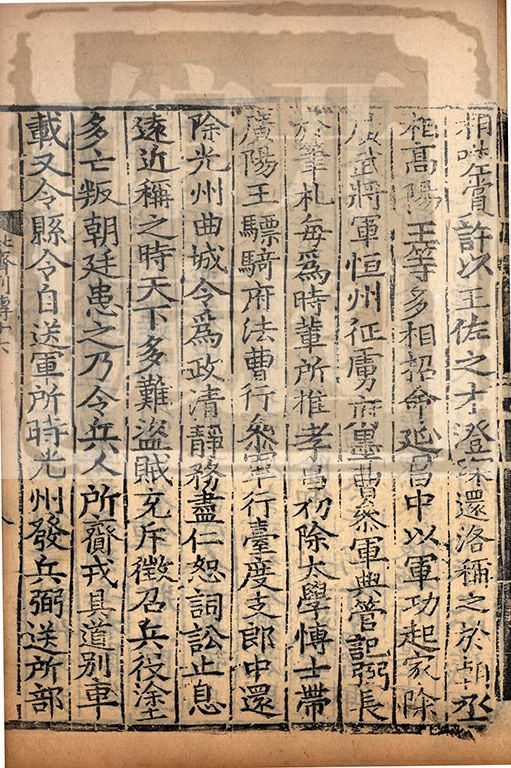 相嗟賞許以王佐之才澄琛還洛稱之於朝丞
相高陽王等多相招命延昌中以軍功起家除
廣武將軍恒州征虜府墨曹參軍典管記弼長
於筆札每爲時輩所推孝昌初除太學博士帶
廣陽王驃騎府法曹行參軍行臺度支郎中還
除光州曲城令爲政清靜務盡仁恕詞訟止息
遠近稱之時天下多難盜賊充斥徵召兵役塗
多亡叛朝廷患之乃令兵人所齎戎具道別車
載又令縣令自送軍所時光州發兵弼送所部
北齊列傳十六
八